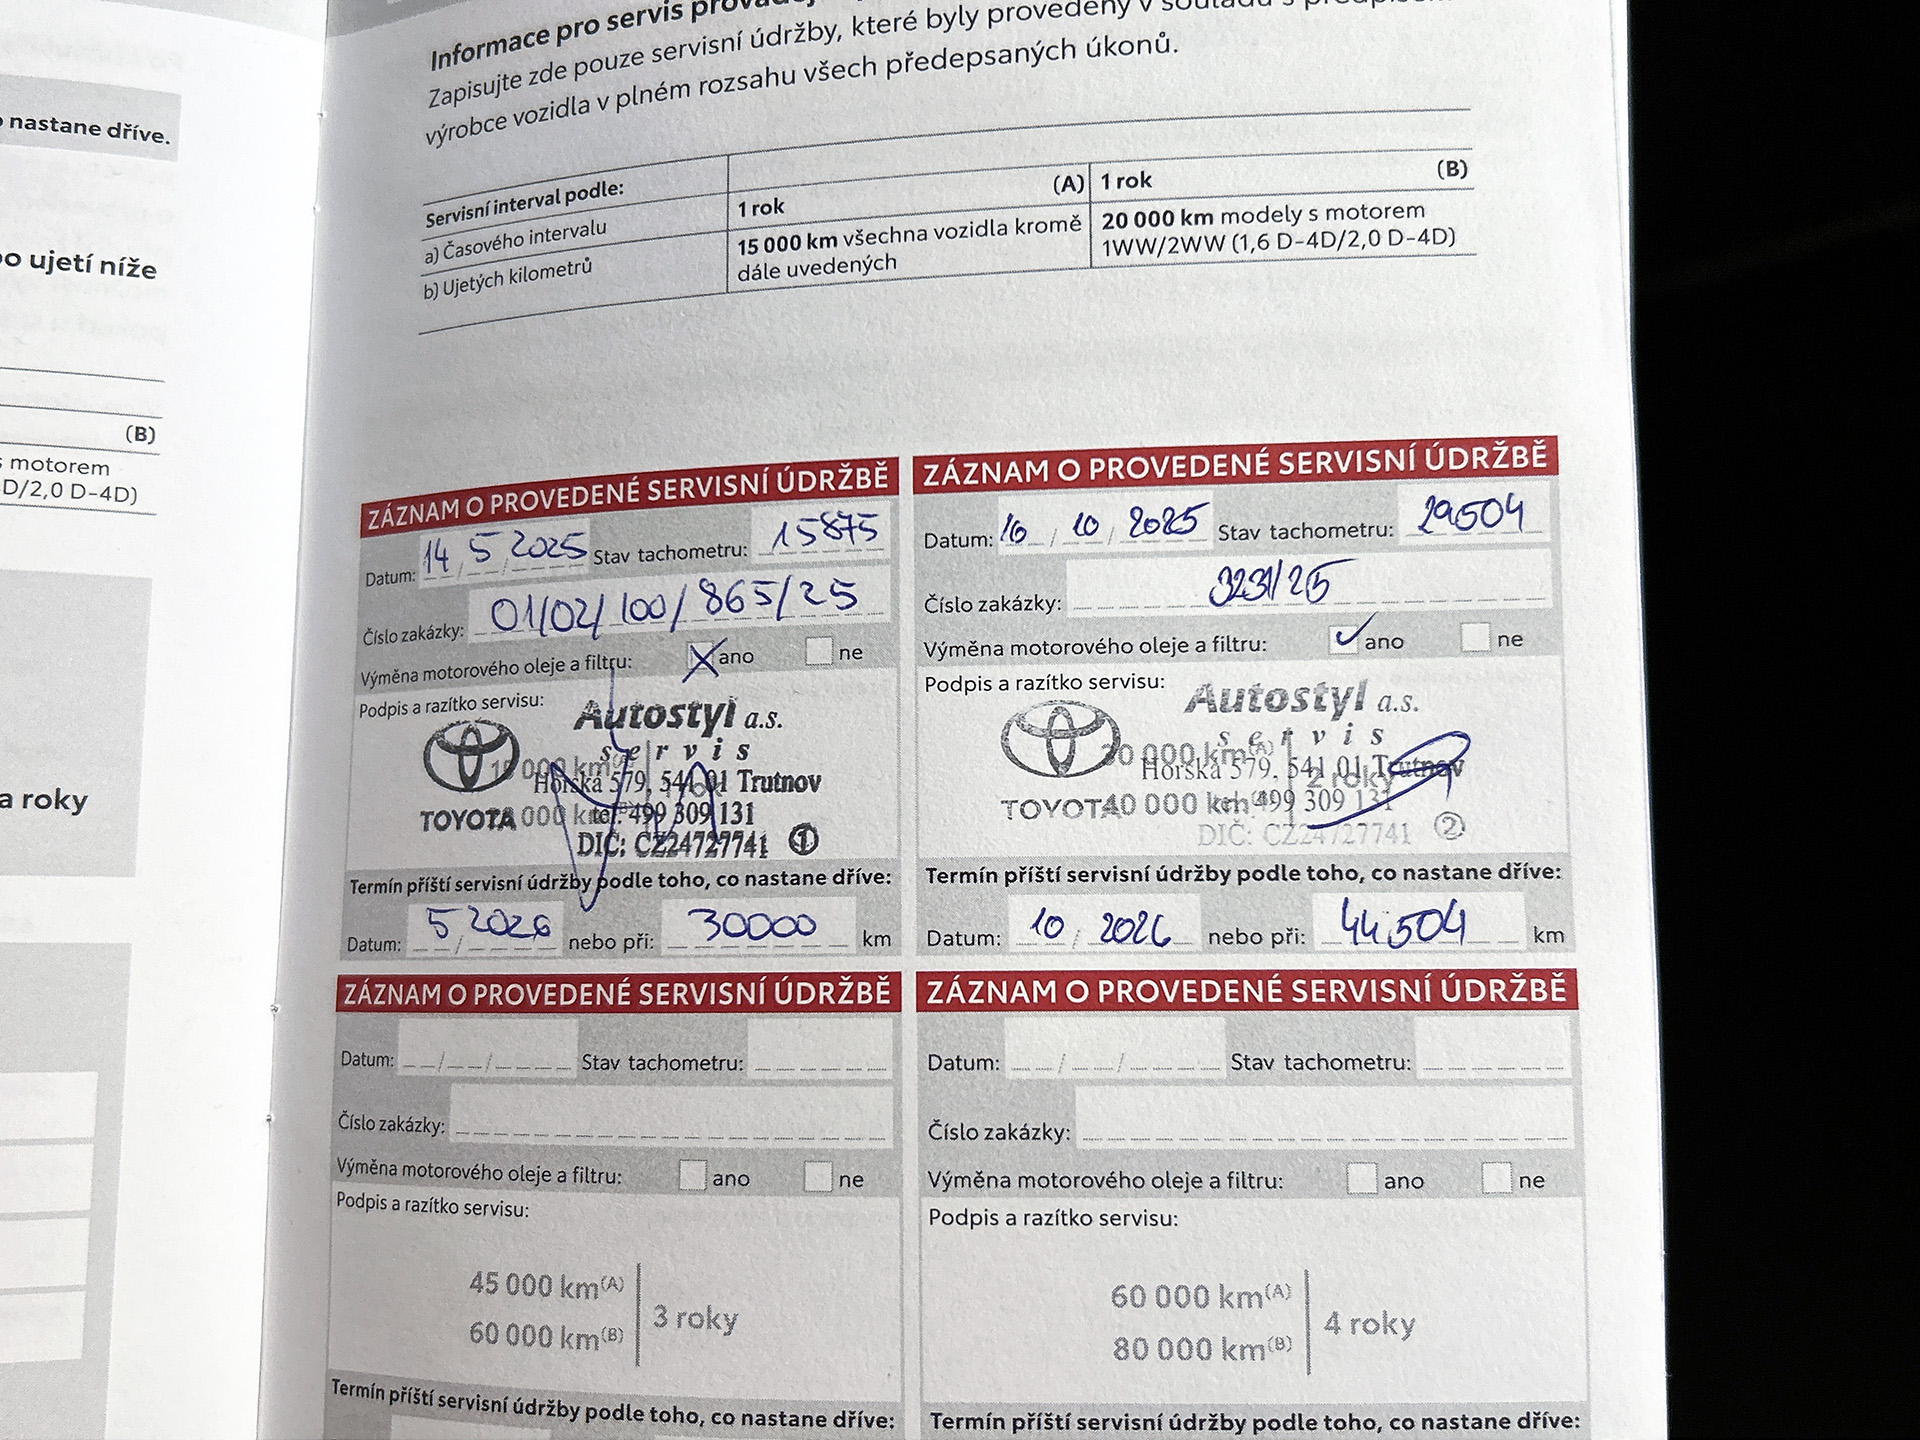 nastane dříve.
o ujetí níže
(B)
s motorem
D/2,0 D-4D)
a roky
Informace pro servis
Zapisujte zde pouze servisní údržby, které byly provedeny v souladu s
výrobce vozidla v plném rozsahu všech předepsaných úkonů.
Servisní interval podle: (A) (B)
a) Časového intervalu 1 rok 1 rok
b) Ujetých kilometrů 15 000 km všechna vozidla kromě 20 000 km modely s motorem
dále uvedených 1WW/2WW (1,6 D-4D/2,0 D-4D)
ZÁZNAM O PROVEDENÉ SERVISNÍ ÚDRŽBĚ
Datum: 14/5/2025 Stav tachometru: 15875
Číslo zakázky: 01/02/100/865/25
Výměna motorového oleje a filtru: X ano ne
Podpis a razítko servisu:
Autostyl a.s.
servis
Horská 579, 541 01 Trutnov
TOYOTA
tel: 499 309 131
DIČ: CZ24727741 1
Termín příští servisní údržby podle toho, co nastane dříve:
Datum: 5/2026 nebo při: 30000 km
ZÁZNAM O PROVEDENÉ SERVISNÍ ÚDRŽBĚ
Datum: 16/10/2025 Stav tachometru: 29504
Číslo zakázky: 3231/25
Výměna motorového oleje a filtru: ✓ ano ne
Podpis a razítko servisu:
Autostyl a.s.
servis
30 000 km(A) 2 roky
Horská 579, 541 01 Trutnov
TOYOTA
40 000 km
tel: 499 309 131
DIČ: CZ24727741 2
Termín příští servisní údržby podle toho, co nastane dříve:
Datum: 10/2026 nebo při: 44504 km
ZÁZNAM O PROVEDENÉ SERVISNÍ ÚDRŽBĚ
Datum: Stav tachometru:
Číslo zakázky:
Výměna motorového oleje a filtru: ano ne
Podpis a razítko servisu:
45 000 km(A)
60 000 km(B)
3 roky
Termín příští servisní údržby podle toho, co nastane dříve:
ZÁZNAM O PROVEDENÉ SERVISNÍ ÚDRŽBĚ
Datum: Stav tachometru:
Číslo zakázky:
Výměna motorového oleje a filtru: ano ne
Podpis a razítko servisu:
60 000 km(A)
80 000 km(B)
4 roky
Termín příští servisní údržby podle toho, co nastane dříve: